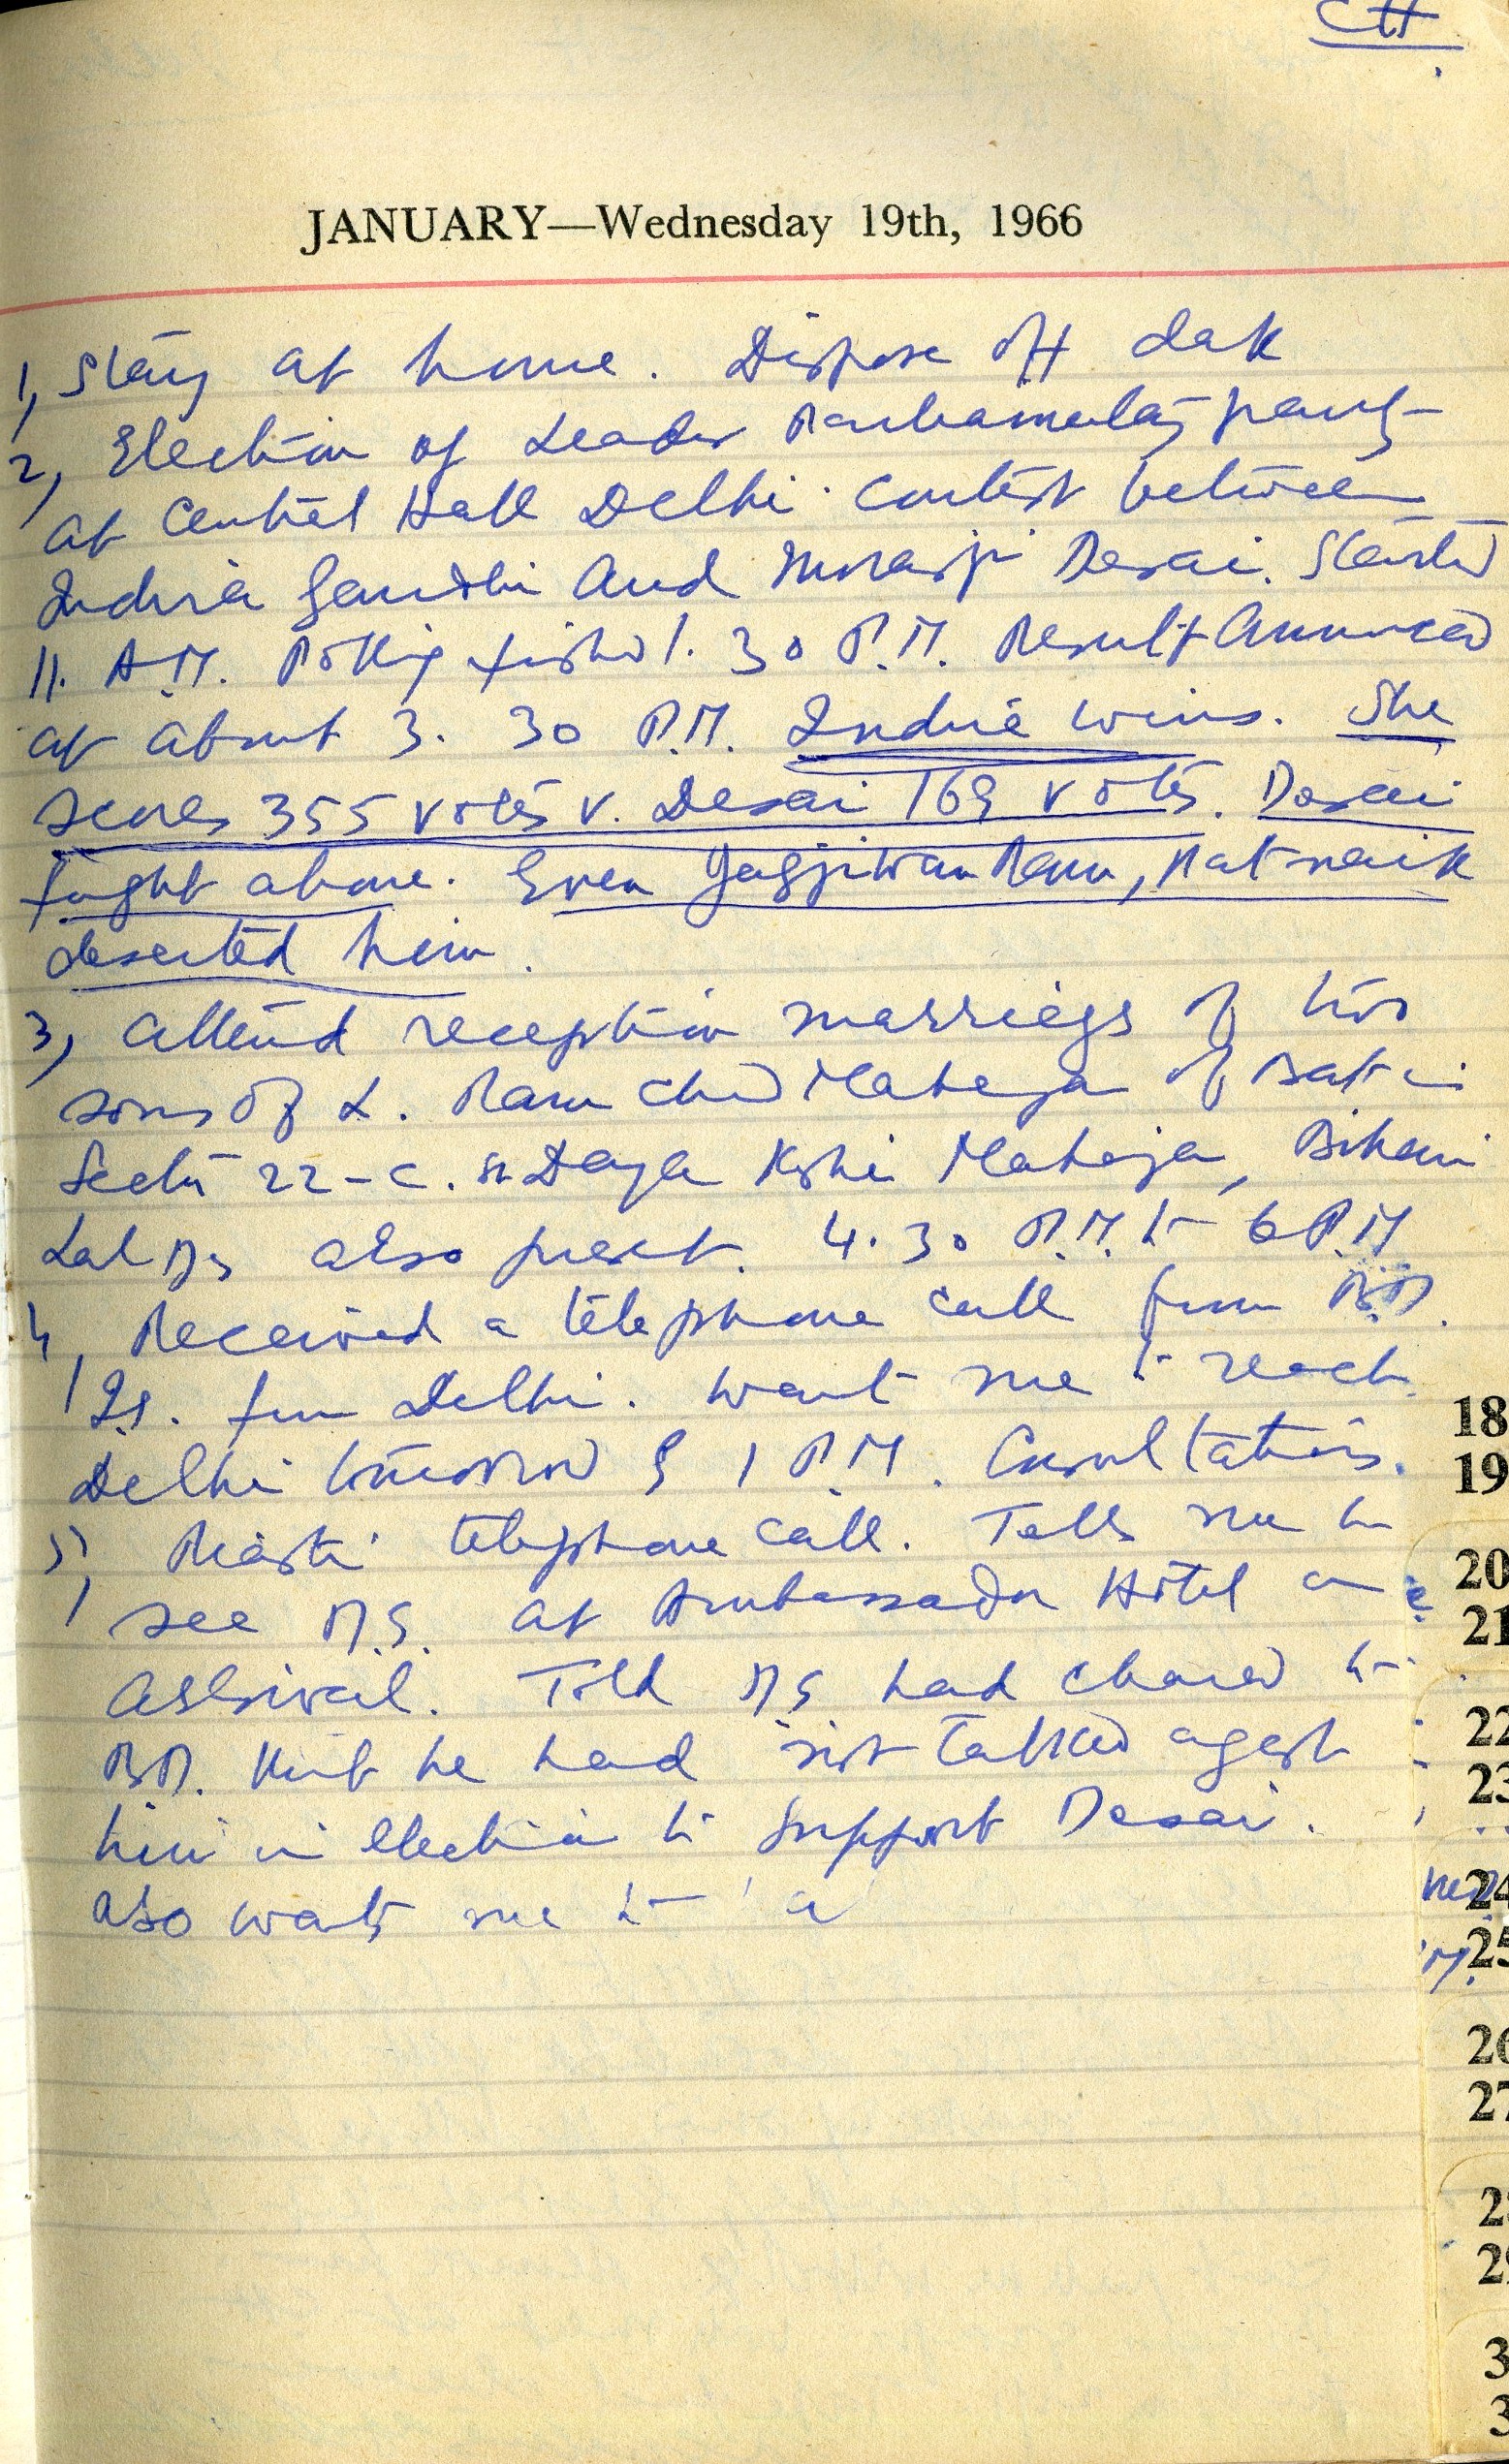 CH
JANUARY—Wednesday 19th, 1966
1, Stay at home. Dispose off dak
2, Election of Leader Parliamentary party
at Central Hall Delhi. Contest between
Indira Gandhi and Morarji Desai. Started
11. A.M. Polling finished 1. 30 P.M. Result announced
at about 3. 30 P.M. Indira wins. She
scores 355 votes v. Desai 169 votes. Desai
fought alone. Even Jagjiwan Ram, Patnaik
deserted him.
3, Attend reception marriage of two
sons of L. Ram Chd Maheja of in
Sector 22-C. Daya Kishi Maheja, Bihari
Lal also present. 4. 30 P.M. to 6 P.M
4, Received a telephone call from
from Delhi. Want me to reach
Delhi tomorrow 1 P.M. Consultations.
5, telephone call. Tells me to
see at Ambassador Hotel on
arrival. Told had to
that he had not talked against
him in election to support Desai.
also wants me to
18
19
20
21
22
23
24
25
26
27